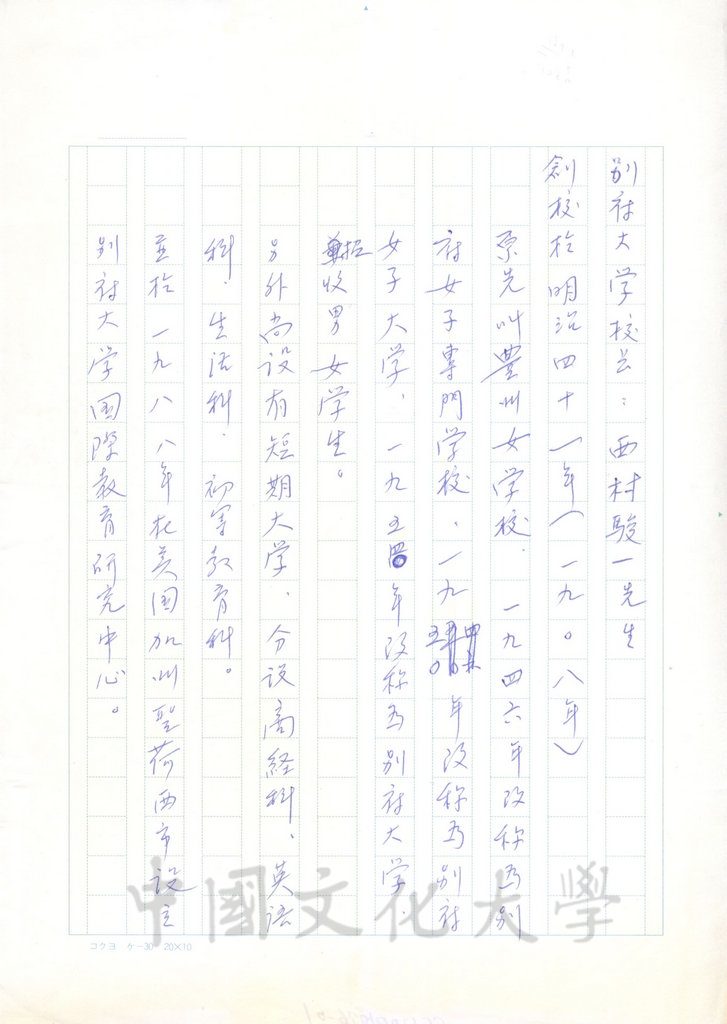 別府大学校长：西村駿一先生
創校於明治四十一年（一九〇八年）
原先叫豐州女学校．一九四六年改称為別
府女子專門学校．一九五〇年改称為別府
女子大学．一九五四年改称為別府大学．
招收男女学生。
另外尚设有短期大学．分设商経科．英语
科．生活科．初等教育科。
並於一九八八年在美国加州聖荷西市設立
別府大学国際教育研究中心。
コクヨ ケ-30 20×10
中國文化大學